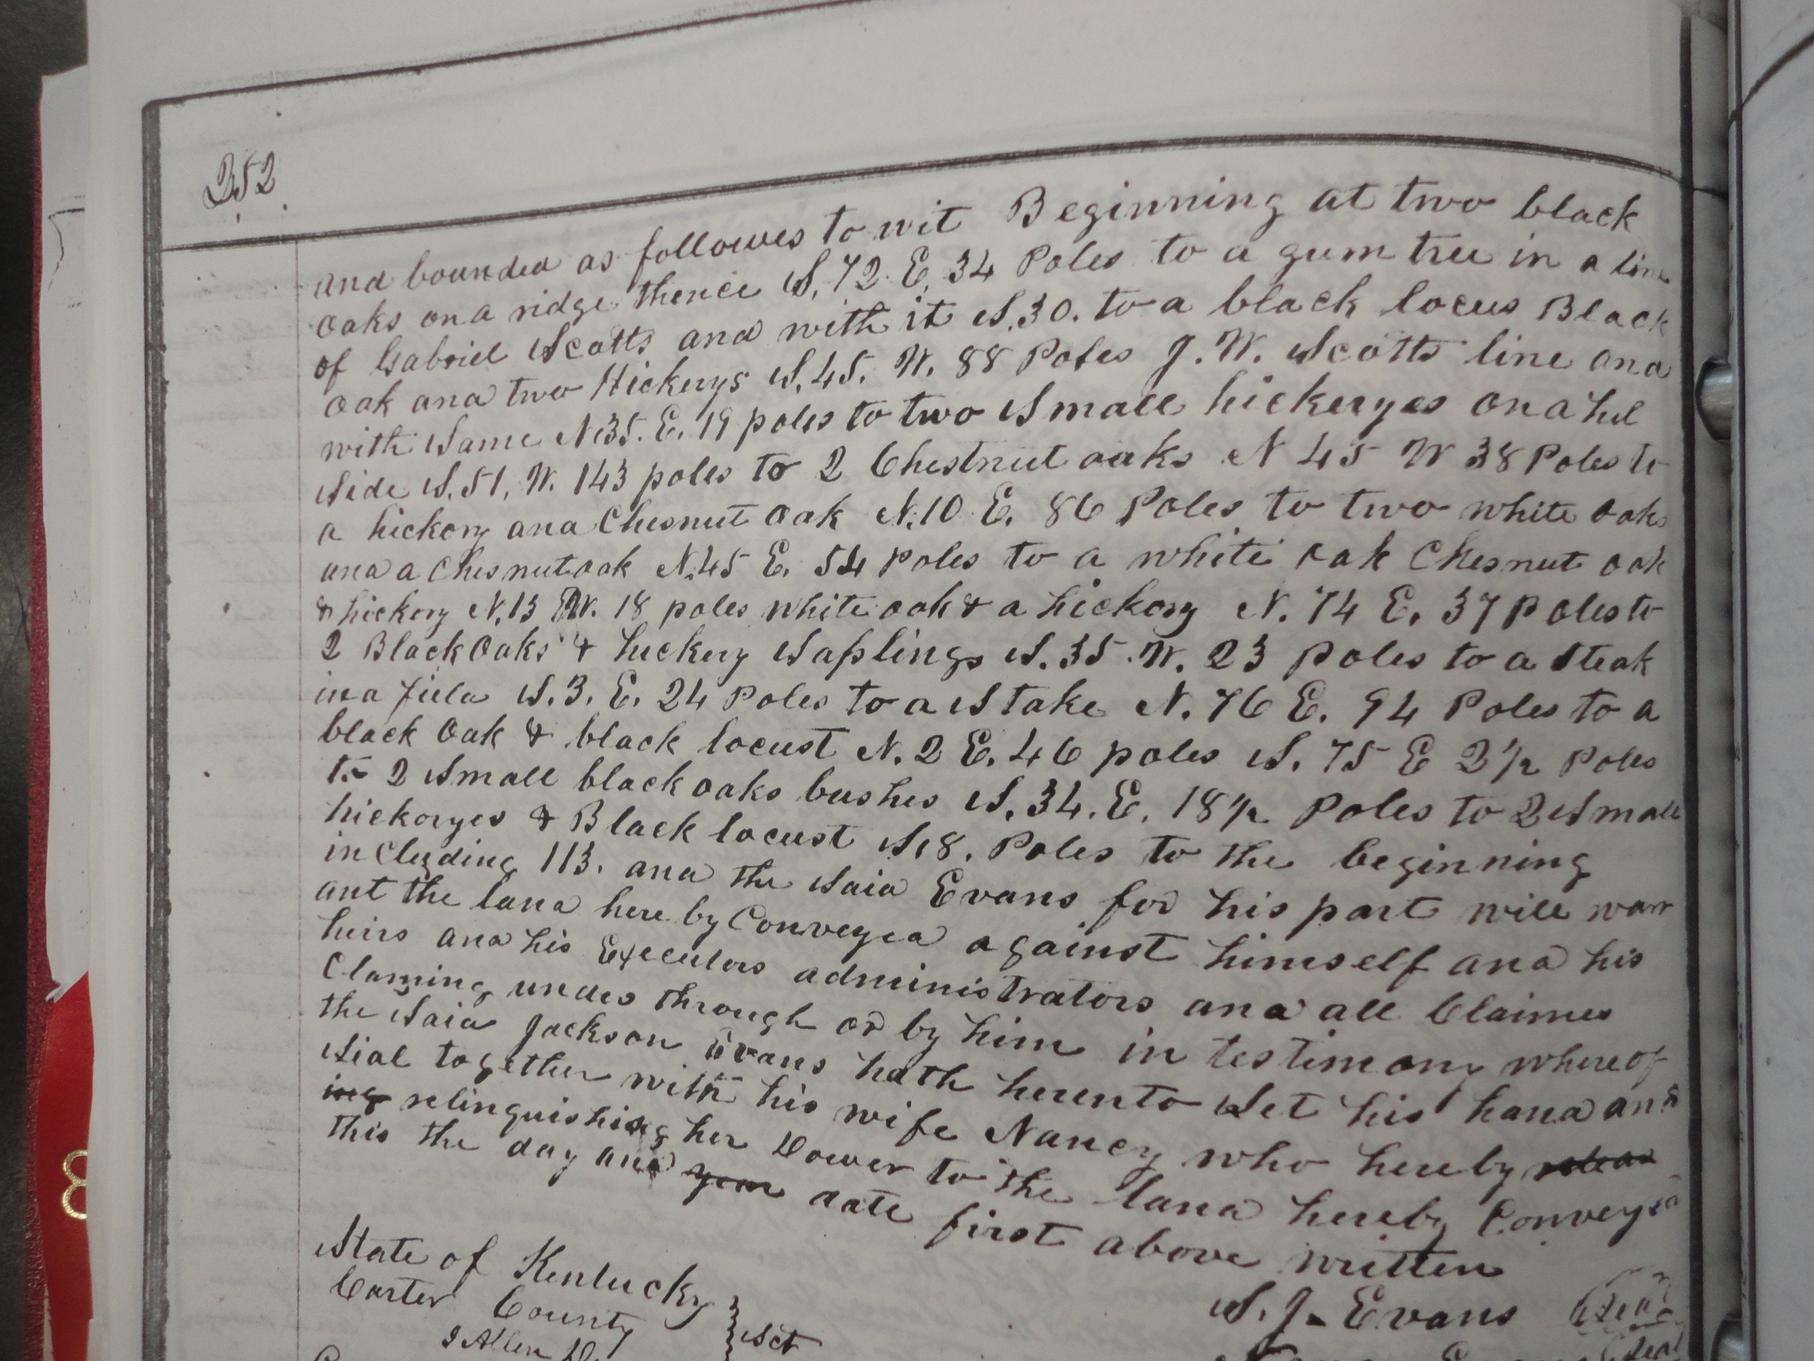 252
and bounded as followes to wit Beginning at two black
oaks on a ridge thence S. 72 E. 34 Poles to a gum tree in a line
of Gabriel Scotts and with it S. 30. to a black locus Black
oak and two Hickerys S. 45. W. 88 Poles J. W. Scotts line and
with Same N 35. E. 19 poles to two Small hickeryes on a hil
Side S. 51. W. 143 poles to 2 Chestnut oaks N 45 W 38 Poles to
a hickory and Chesnut oak N. 10 E. 86 Poles to two white oak
and a Chesnut oak N. 45 E. 54 Poles to a white oak Chesnut oak
& hickory N. 13 W. 18 poles white oak & a hickory N. 74 E. 37 Poles to
2 Black Oaks & hickery Saplings S. 35. W. 23 Poles to a Steak
in a field S. 3. E. 24 Poles to a Stake N. 76 E. 94 Poles to a
black oak & black locust N. 2 E. 46 poles S. 75 E 2 1/2 Poles
to 2 Small black oaks bushes S. 34. E. 18 1/2 Poles to 2 Small
hickoryes & Black locust S. 8. Poles to the beginning
including 113. and the Said Evans for his part will warr
ant the land here by Conveyed against himself and his
heirs and his Executors administrators and all Claimes
Claming under through or by him in testimony where of
the Said Jackson Evans hath herento Set his hand and
Seal together with his wife Nancy who hereby releas
ing relinquishing her Dower to the land hereby Conveyed
this the day and year date first above written
S. J. Evans Seal
State of Kentucky
Carter County Sct
I Allen
Seal
8